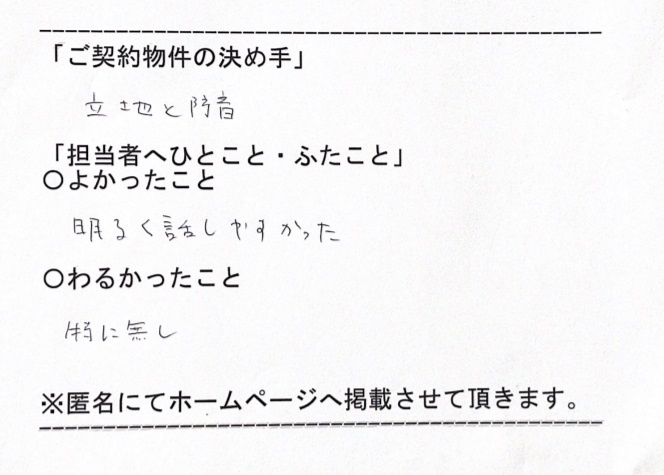 「ご契約物件の決め手」
立地と防音
「担当者へひとこと・ふたこと」
○よかったこと
明るく話しやすかった
○わるかったこと
特に無し
※匿名にてホームページへ掲載させて頂きます。